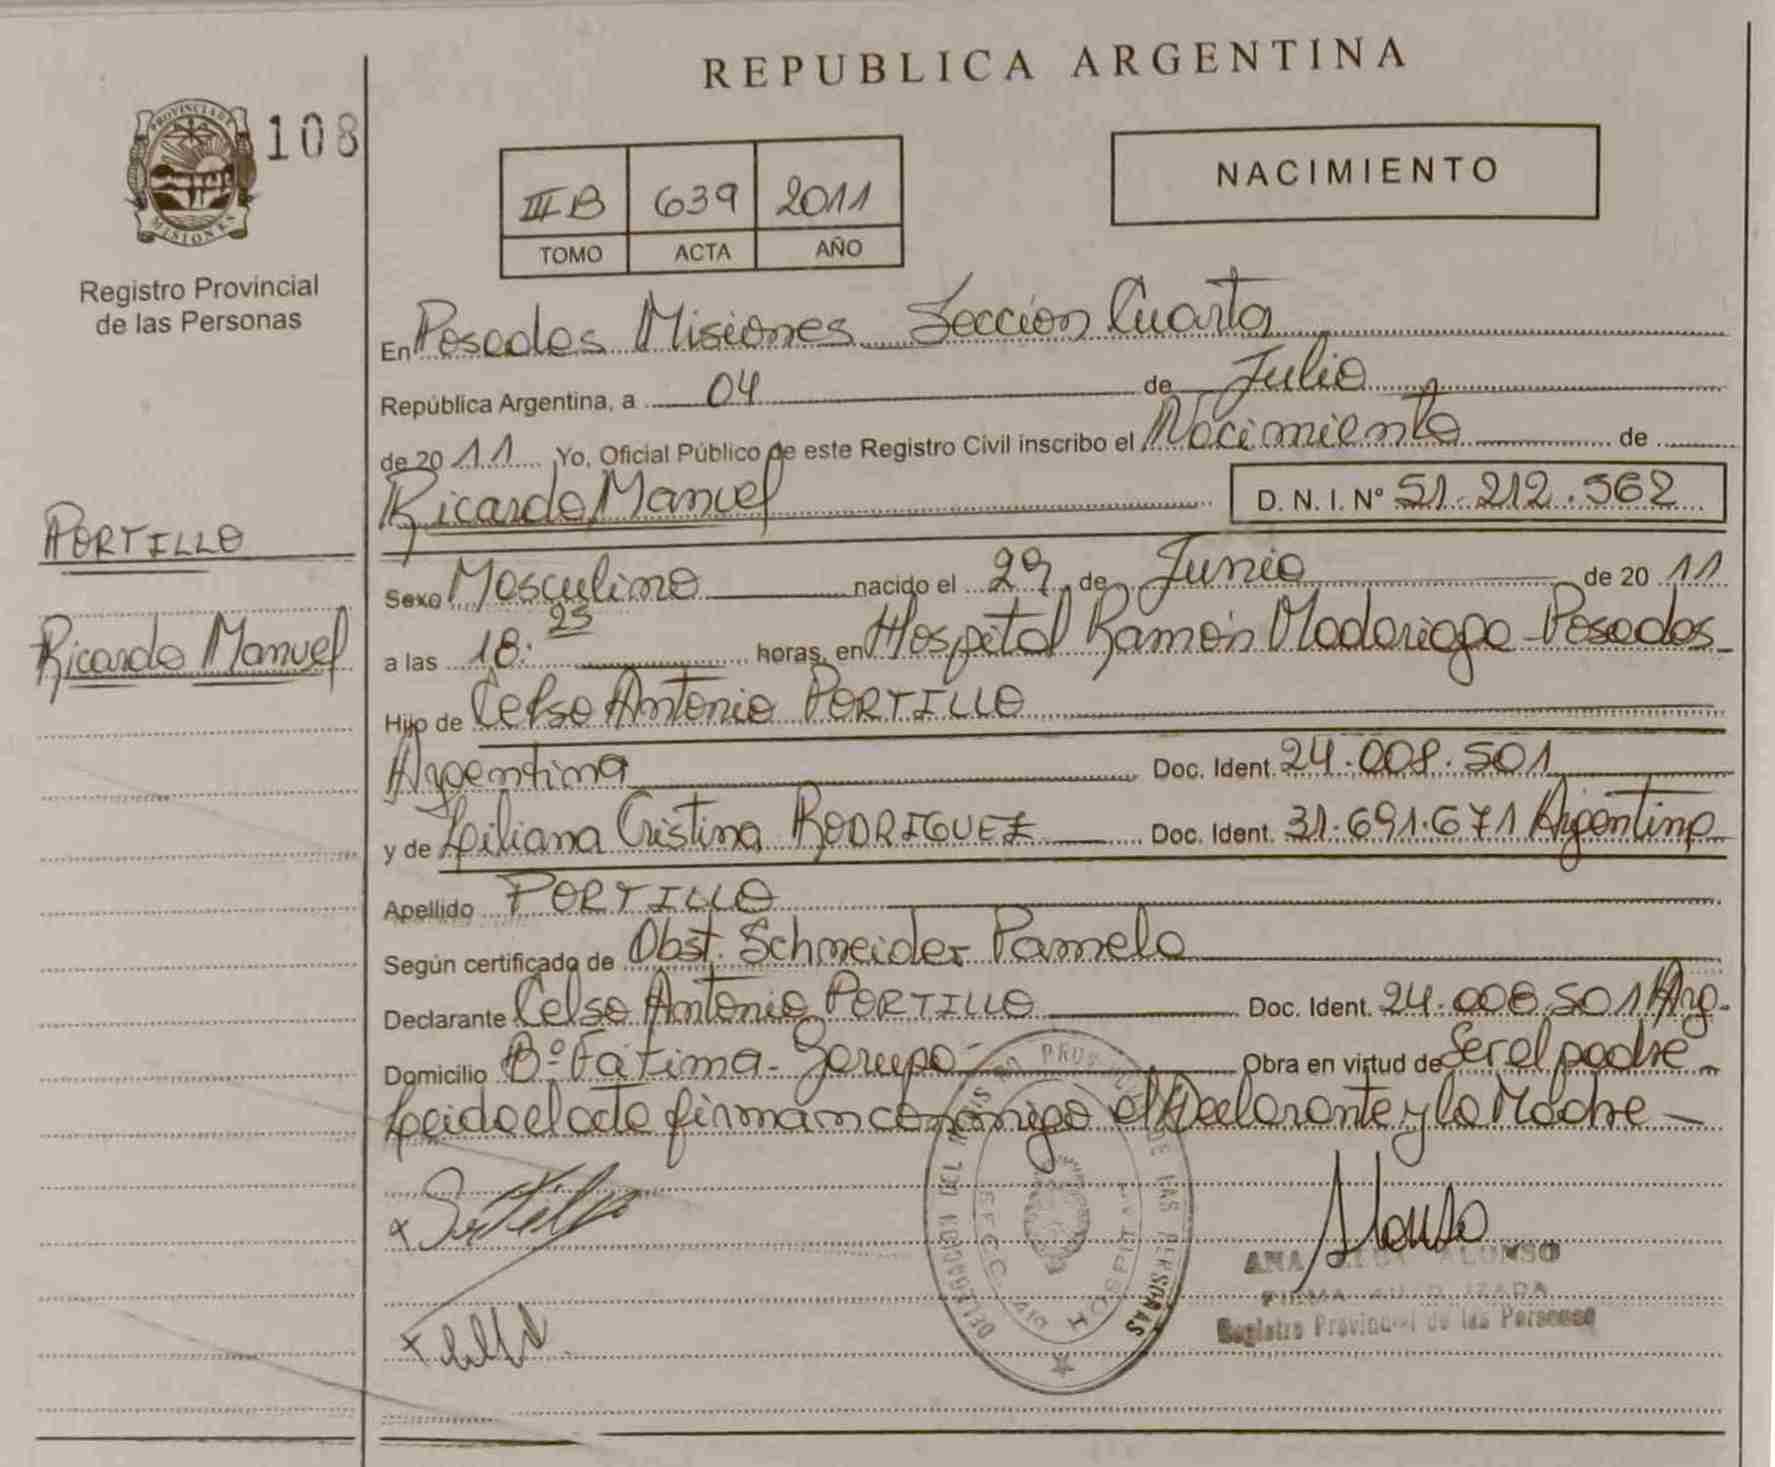 REPUBLICA ARGENTINA
PROVINCIA DE MISIONES
108
NACIMIENTO
III B 639 2011
TOMO ACTA AÑO
Registro Provincial
de las Personas
En Posadas Misiones Sección Cuarta
República Argentina, a 04 de Julio
de 2011 Yo, Oficial Público de este Registro Civil inscribo el Nacimiento de
Ricardo Manuel D. N. I. N° 51.212.562
PORTILLO
Ricardo Manuel
Sexo Masculino nacido el 29 de Junio de 2011
a las 18:25 horas, en Hospital Ramón Madariaga - Posadas
Hijo de Celso Antonio PORTILLO
Argentina Doc. Ident. 24.008.501
y de Liliana Cristina RODRIGUEZ Doc. Ident. 31.691.671 Argentina
Apellido PORTILLO
Según certificado de Obst. Schneider Pamela
Declarante Celso Antonio PORTILLO Doc. Ident. 24.008.501 Arg.
Domicilio B° Fátima - Garupá - Obra en virtud de Ser el padre
Leida el acta firman conmigo el Declarante y la Madre
DE LAS PERSONAS
HOSPIT
ANA ALONSO
Registro Provincial de las Personas